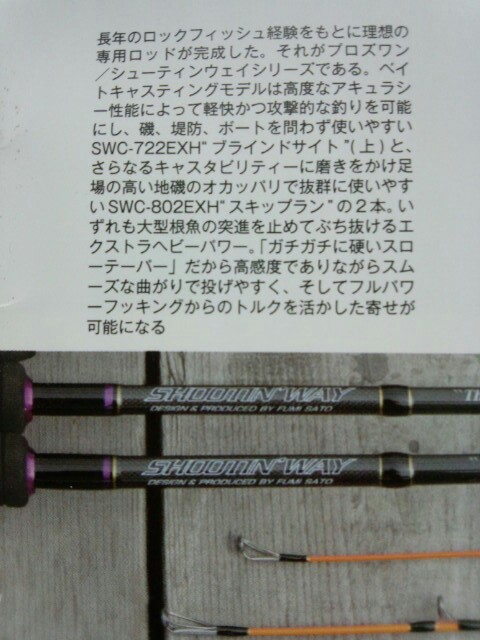 長年のロックフィッシュ経験をもとに理想の
専用ロッドが完成した。それがブロズワン
／シューティンウェイシリーズである。ベイ
トキャスティングモデルは高度なアキュラシ
ー性能によって軽快かつ攻撃的な釣りを可能
にし、磯、堤防、ボートを問わず使いやすい
SWC-722EXH“ブラインドサイト”(上)と、
さらなるキャスタビリティーに磨きをかけ足
場の高い地磯のオカッパリで抜群に使いやす
いSWC-802EXH“スキップラン”の2本。い
ずれも大型根魚の突進を止めてぶち抜けるエ
クストラヘビーパワー。「ガチガチに硬いスロ
ーテーパー」だから高感度でありながらスム
ーズな曲がりで投げやすく、そしてフルパワ
ーフッキングからのトルクを活かした寄せが
可能になる
SHOOTIN' WAY
DESIGN & PRODUCED BY FUMI SATO
SHOOTIN' WAY
DESIGN & PRODUCED BY FUMI SATO